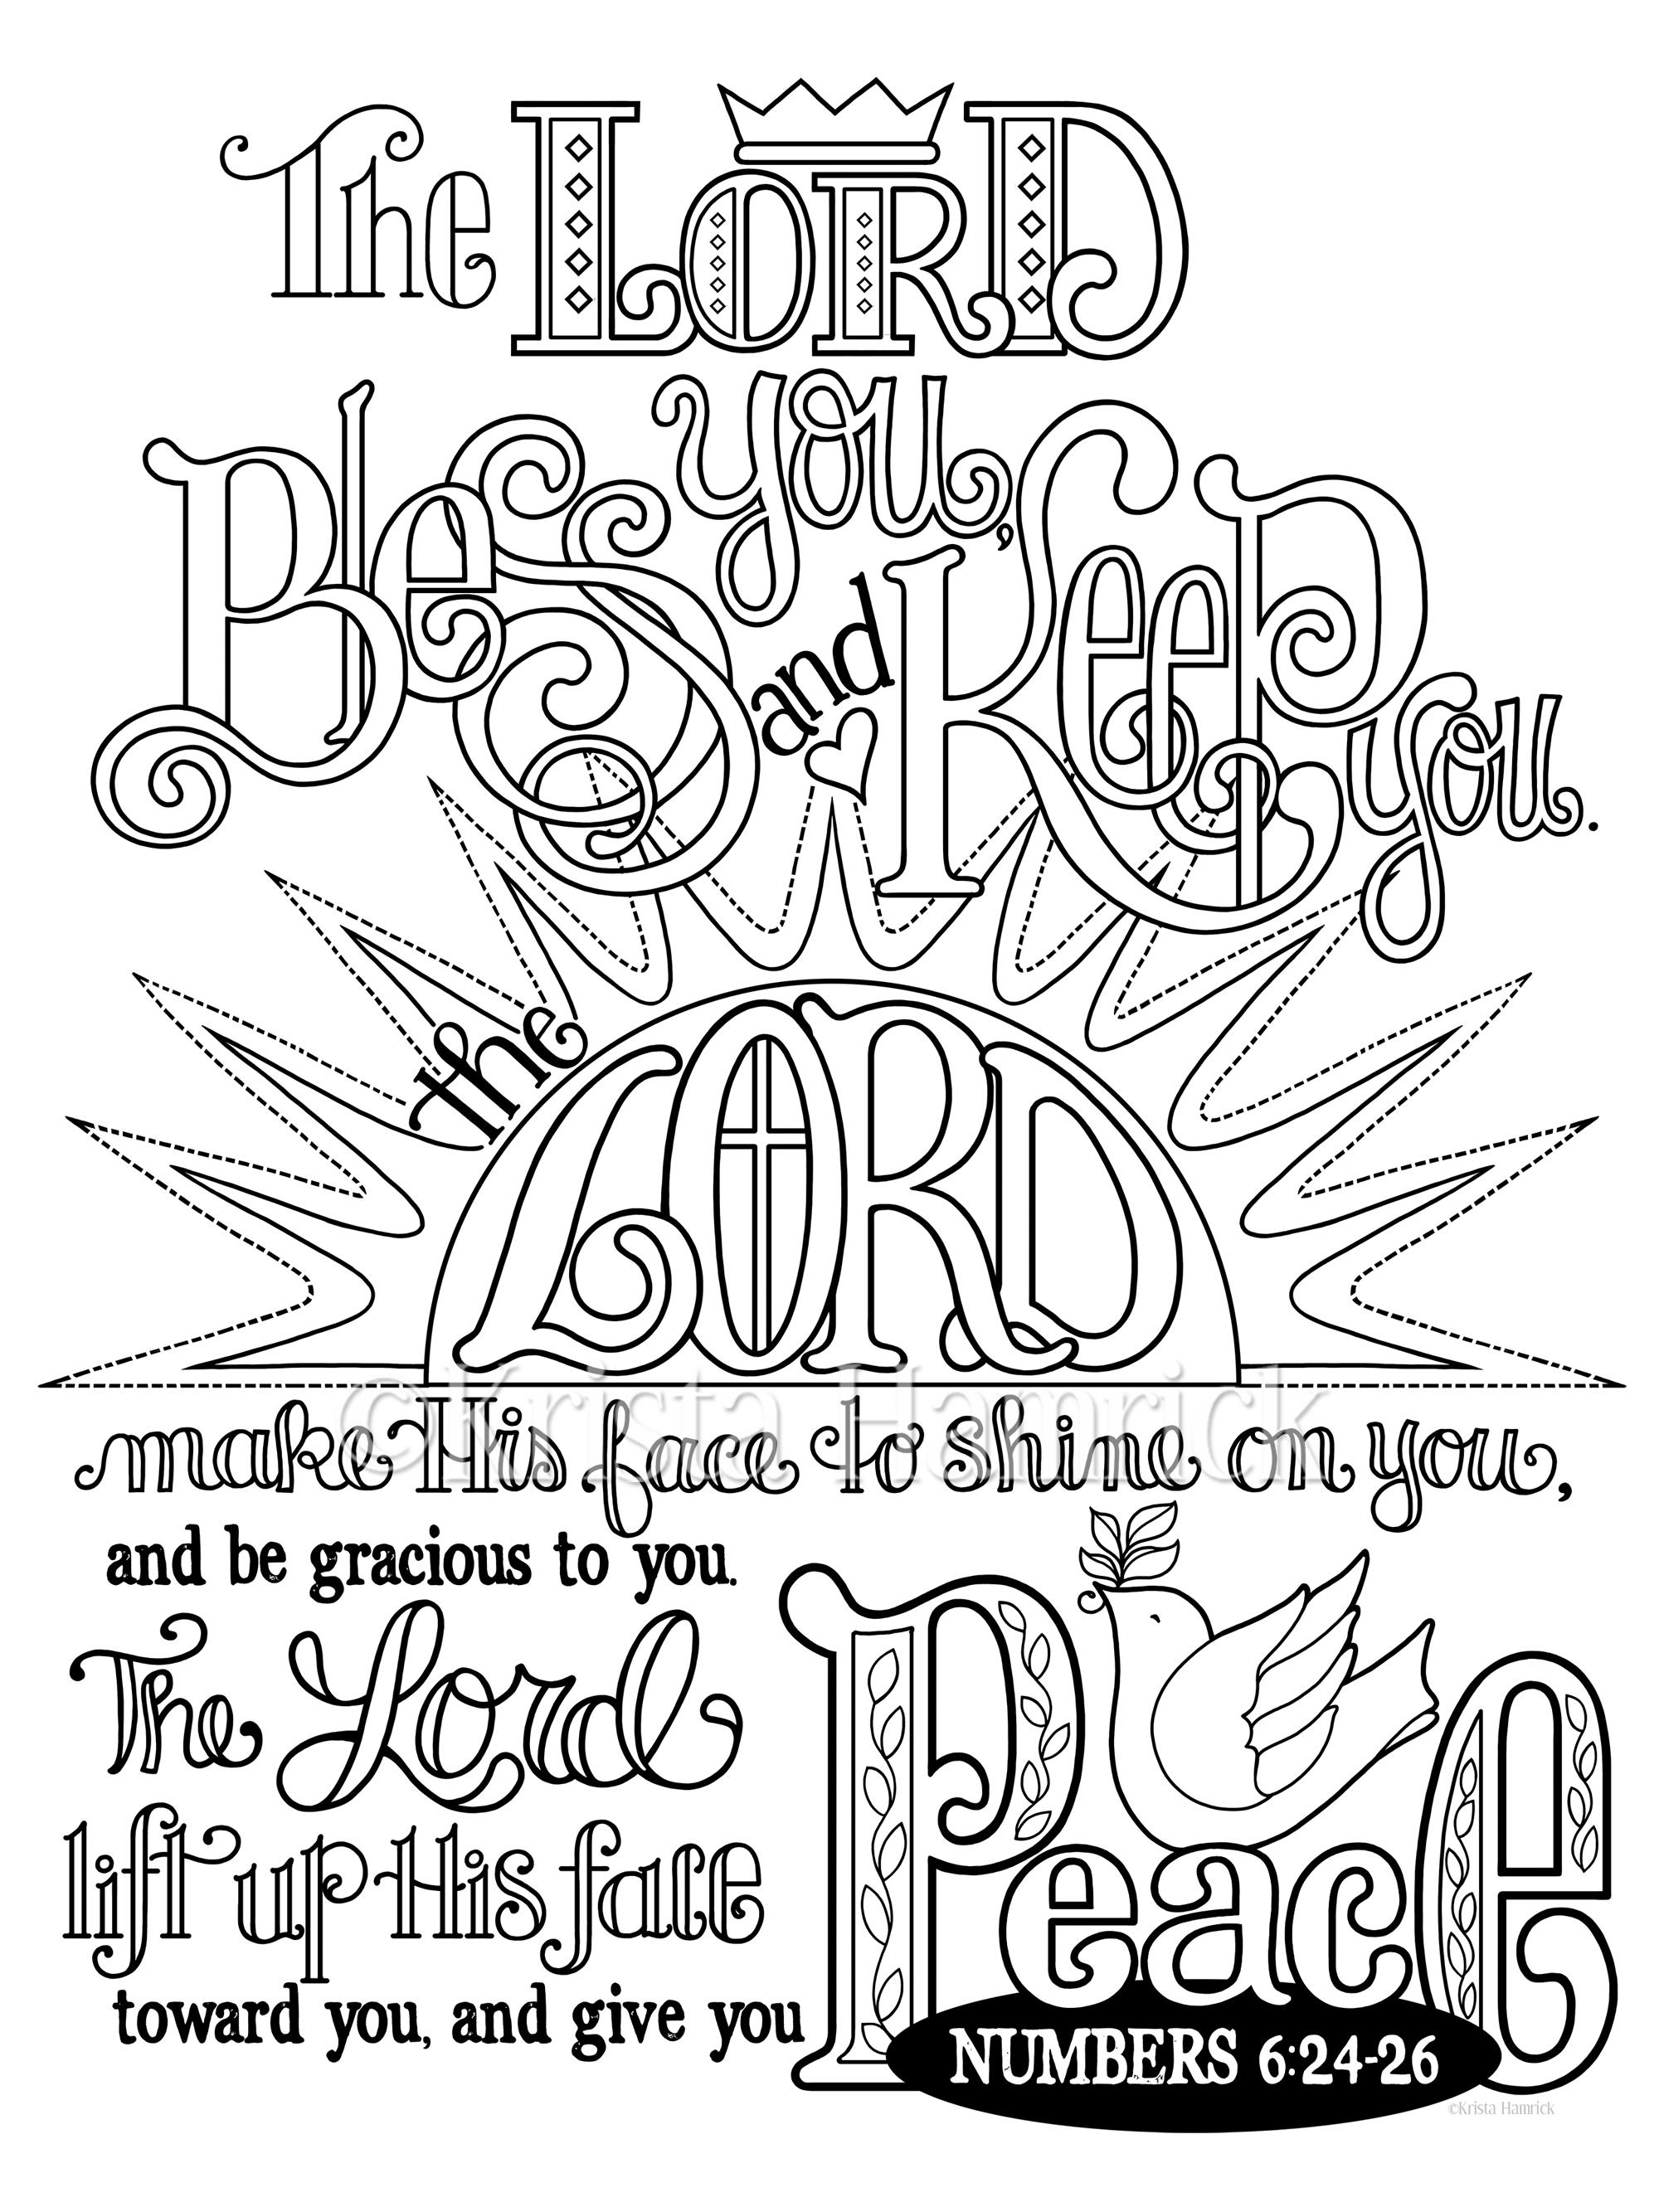 The LORD
Bless you,
and Keep you.
the
LORD
©Krista Hamrick
make His face to shine on you,
and be gracious to you.
The Lord
lift up His face
toward you, and give you
Peace
NUMBERS 6:24-26
©Krista Hamrick